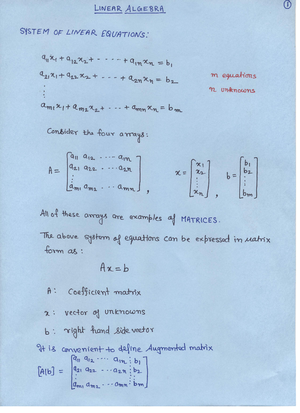 LINEAR ALGEBRA
1
SYSTEM OF LINEAR EQUATIONS:
a11x1 + a12x2 + ----- + a1nxn = b1
a21x1 + a22x2 + ---- + a2nxn = b2
m equations
⋮
n unknowns
am1x1 + am2x2 + ---- + amnxn = bm
Consider the four arrays:
A = [a11 a12 ---- a1n
a21 a22 ---- a2n
⋮
am1 am2 ---- amn], x = [x1
x2
⋮
xn], b = [b1
b2
⋮
bm]
All of these arrays are examples of MATRICES.
The above system of equations can be expressed in matrix
form as:
Ax = b
A: Coefficient matrix
x: vector of unknowns
b: right hand side vector
It is convenient to define Augmented matrix
[A|b] = [a11 a12 ---- a1n ⋮ b1
a21 a22 ---- a2n ⋮ b2
⋮
am1 am2 ---- amn ⋮ bm]